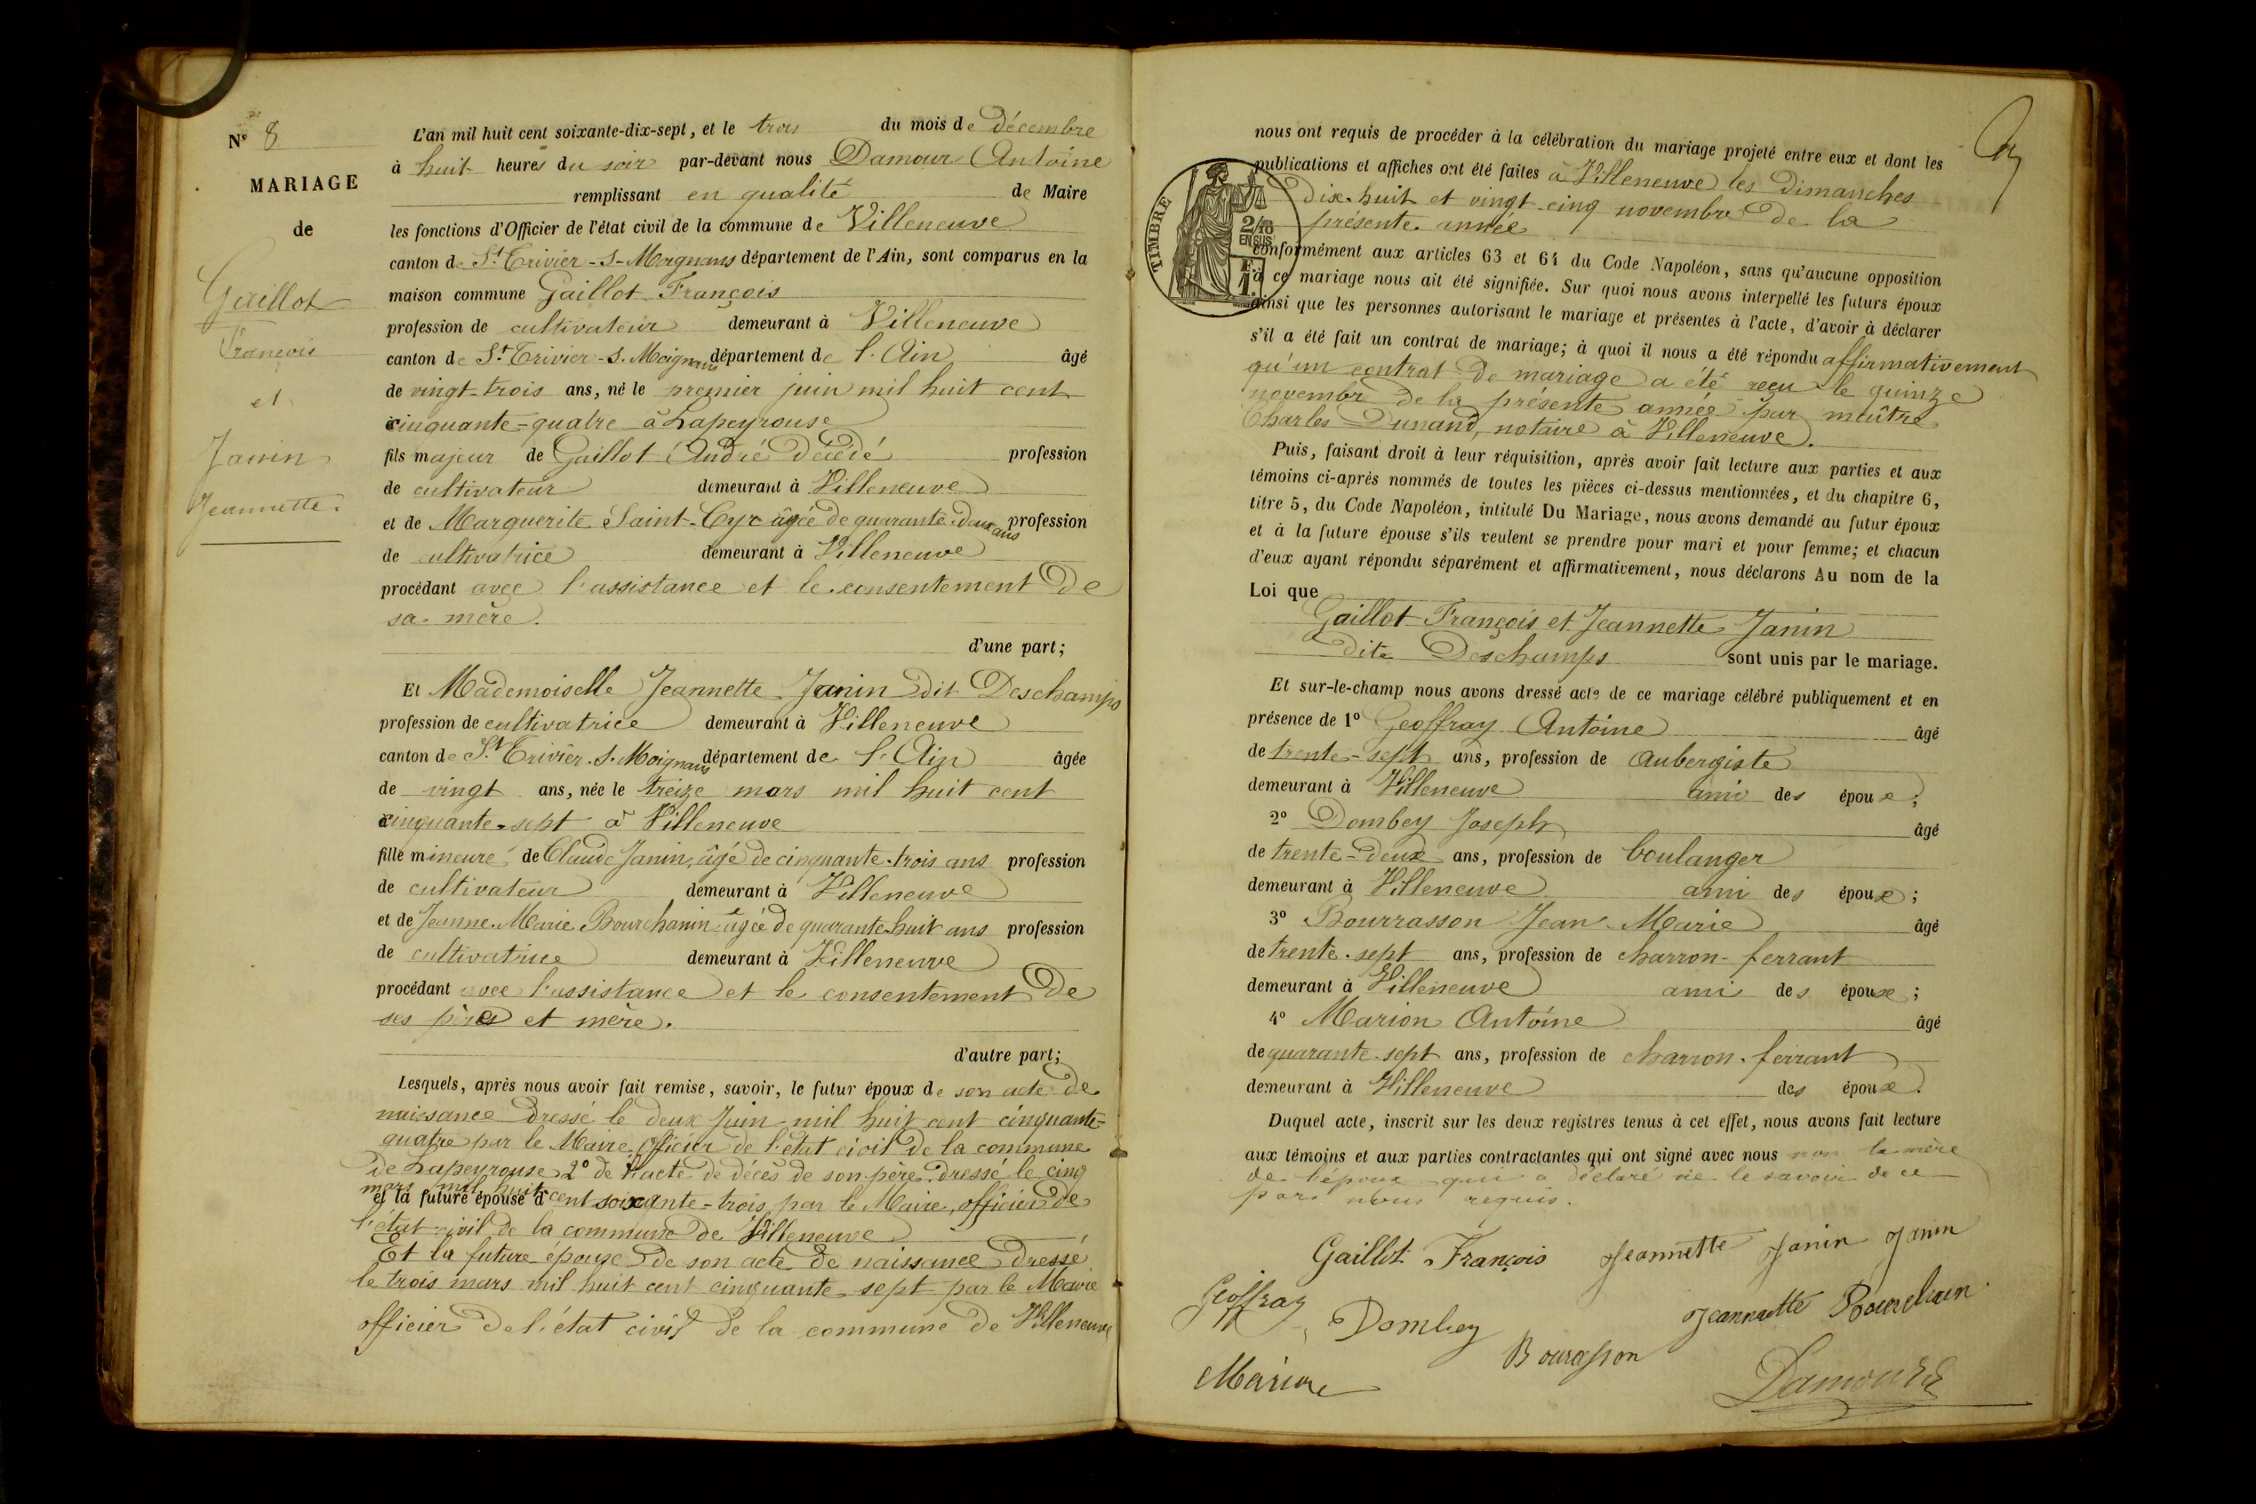 N° 8
MARIAGE
de
Gaillot
François
et
Janin
Jeannette.
L'an mil huit cent soixante-dix-sept, et le trois du mois de décembre
à huit heures du soir par-devant nous Damour Antoine
remplissant en qualité de Maire
les fonctions d'Officier de l'état civil de la commune de Villeneuve
canton de St Trivier-s-Moignans département de l'Ain, sont comparus en la
maison commune Gaillot François
profession de cultivateur demeurant à Villeneuve
canton de St Trivier-s. Moignans département de l'Ain âgé
de vingt-trois ans, né le premier juin mil huit cent
cinquante-quatre à Lapeyrouse
fils majeur de Gaillot André décédé profession
de cultivateur demeurant à Villeneuve
et de Marguerite Saint-Cyr âgée de quarante-deux ans profession
de cultivatrice demeurant à Villeneuve
procédant avec l'assistance et le consentement de
sa mère.
d'une part;
Et Mademoiselle Jeannette Janin dit Deschamps
profession de cultivatrice demeurant à Villeneuve
canton de St Trivier-s. Moignans département de l'Ain âgée
de vingt ans, née le treize mars mil huit cent
cinquante-sept à Villeneuve
fille mineure de Claude Janin, âgé de cinquante-trois ans profession
de cultivateur demeurant à Villeneuve
et de Jeanne-Marie Bourchanin âgée de quarante-huit ans profession
de cultivatrice demeurant à Villeneuve
procédant avec l'assistance et le consentement de
ses père et mère.
d'autre part;
Lesquels, après nous avoir fait remise, savoir, le futur époux de son acte de
naissance dressé le deux Juin mil huit cent cinquante-
quatre par le Maire officier de l'état civil de la commune
de Lapeyrouse 2° de l'acte de décès de son père dressé le cinq
mars mil huit
et la future épouse d cent soixante-trois par le Maire, officier de
l'état-civil de la commune de Villeneuve
Et la future épouse de son acte de naissance dressé
le trois mars mil huit cent cinquante sept par le Maire
officier de l'état civil de la commune de Villeneuve
nous ont requis de procéder à la célébration du mariage projeté entre eux et dont les
publications et affiches ont été faites à Villeneuve les dimanches
dix-huit et vingt-cinq novembre de la
présente année
TIMBRE
2/10
EN SUS
F.
1.
conformément aux articles 63 et 64 du Code Napoléon, sans qu'aucune opposition
à ce mariage nous ait été signifiée. Sur quoi nous avons interpellé les futurs époux
ainsi que les personnes autorisant le mariage et présentes à l'acte, d'avoir à déclarer
s'il a été fait un contrat de mariage; à quoi il nous a été répondu affirmativement
qu'un contrat de mariage a été reçu le quinze
novembre de la présente année par maître
Charles Dunand, notaire à Villeneuve.
Puis, faisant droit à leur réquisition, après avoir fait lecture aux parties et aux
témoins ci-après nommés de toutes les pièces ci-dessus mentionnées, et du chapitre 6,
titre 5, du Code Napoléon, intitulé Du Mariage, nous avons demandé au futur époux
et à la future épouse s'ils veulent se prendre pour mari et pour femme; et chacun
d'eux ayant répondu séparément et affirmativement, nous déclarons Au nom de la
Loi que
Gaillot François et Jeannette Janin
dite Deschamps sont unis par le mariage.
Et sur-le-champ nous avons dressé acte de ce mariage célébré publiquement et en
présence de 1° Geoffray Antoine âgé
de trente-sept ans, profession de Aubergiste
demeurant à Villeneuve ami des époux;
2° Dombey Joseph âgé
de trente-deux ans, profession de boulanger
demeurant à Villeneuve ami des époux;
3° Bourrasson Jean-Marie âgé
de trente-sept ans, profession de charron-ferrant
demeurant à Villeneuve ami des époux;
4° Marion Antoine âgé
de quarante-sept ans, profession de charron-ferrant
demeurant à Villeneuve des époux.
Duquel acte, inscrit sur les deux registres tenus à cet effet, nous avons fait lecture
aux témoins et aux parties contractantes qui ont signé avec nous non la mère
de l'époux qui a déclaré ne le savoir de ce
par nous requis.
Gaillot François Jeannette Janin Janin
Geoffray Dombey Jeannette Bourchanin
Bourasson
Marion Damour